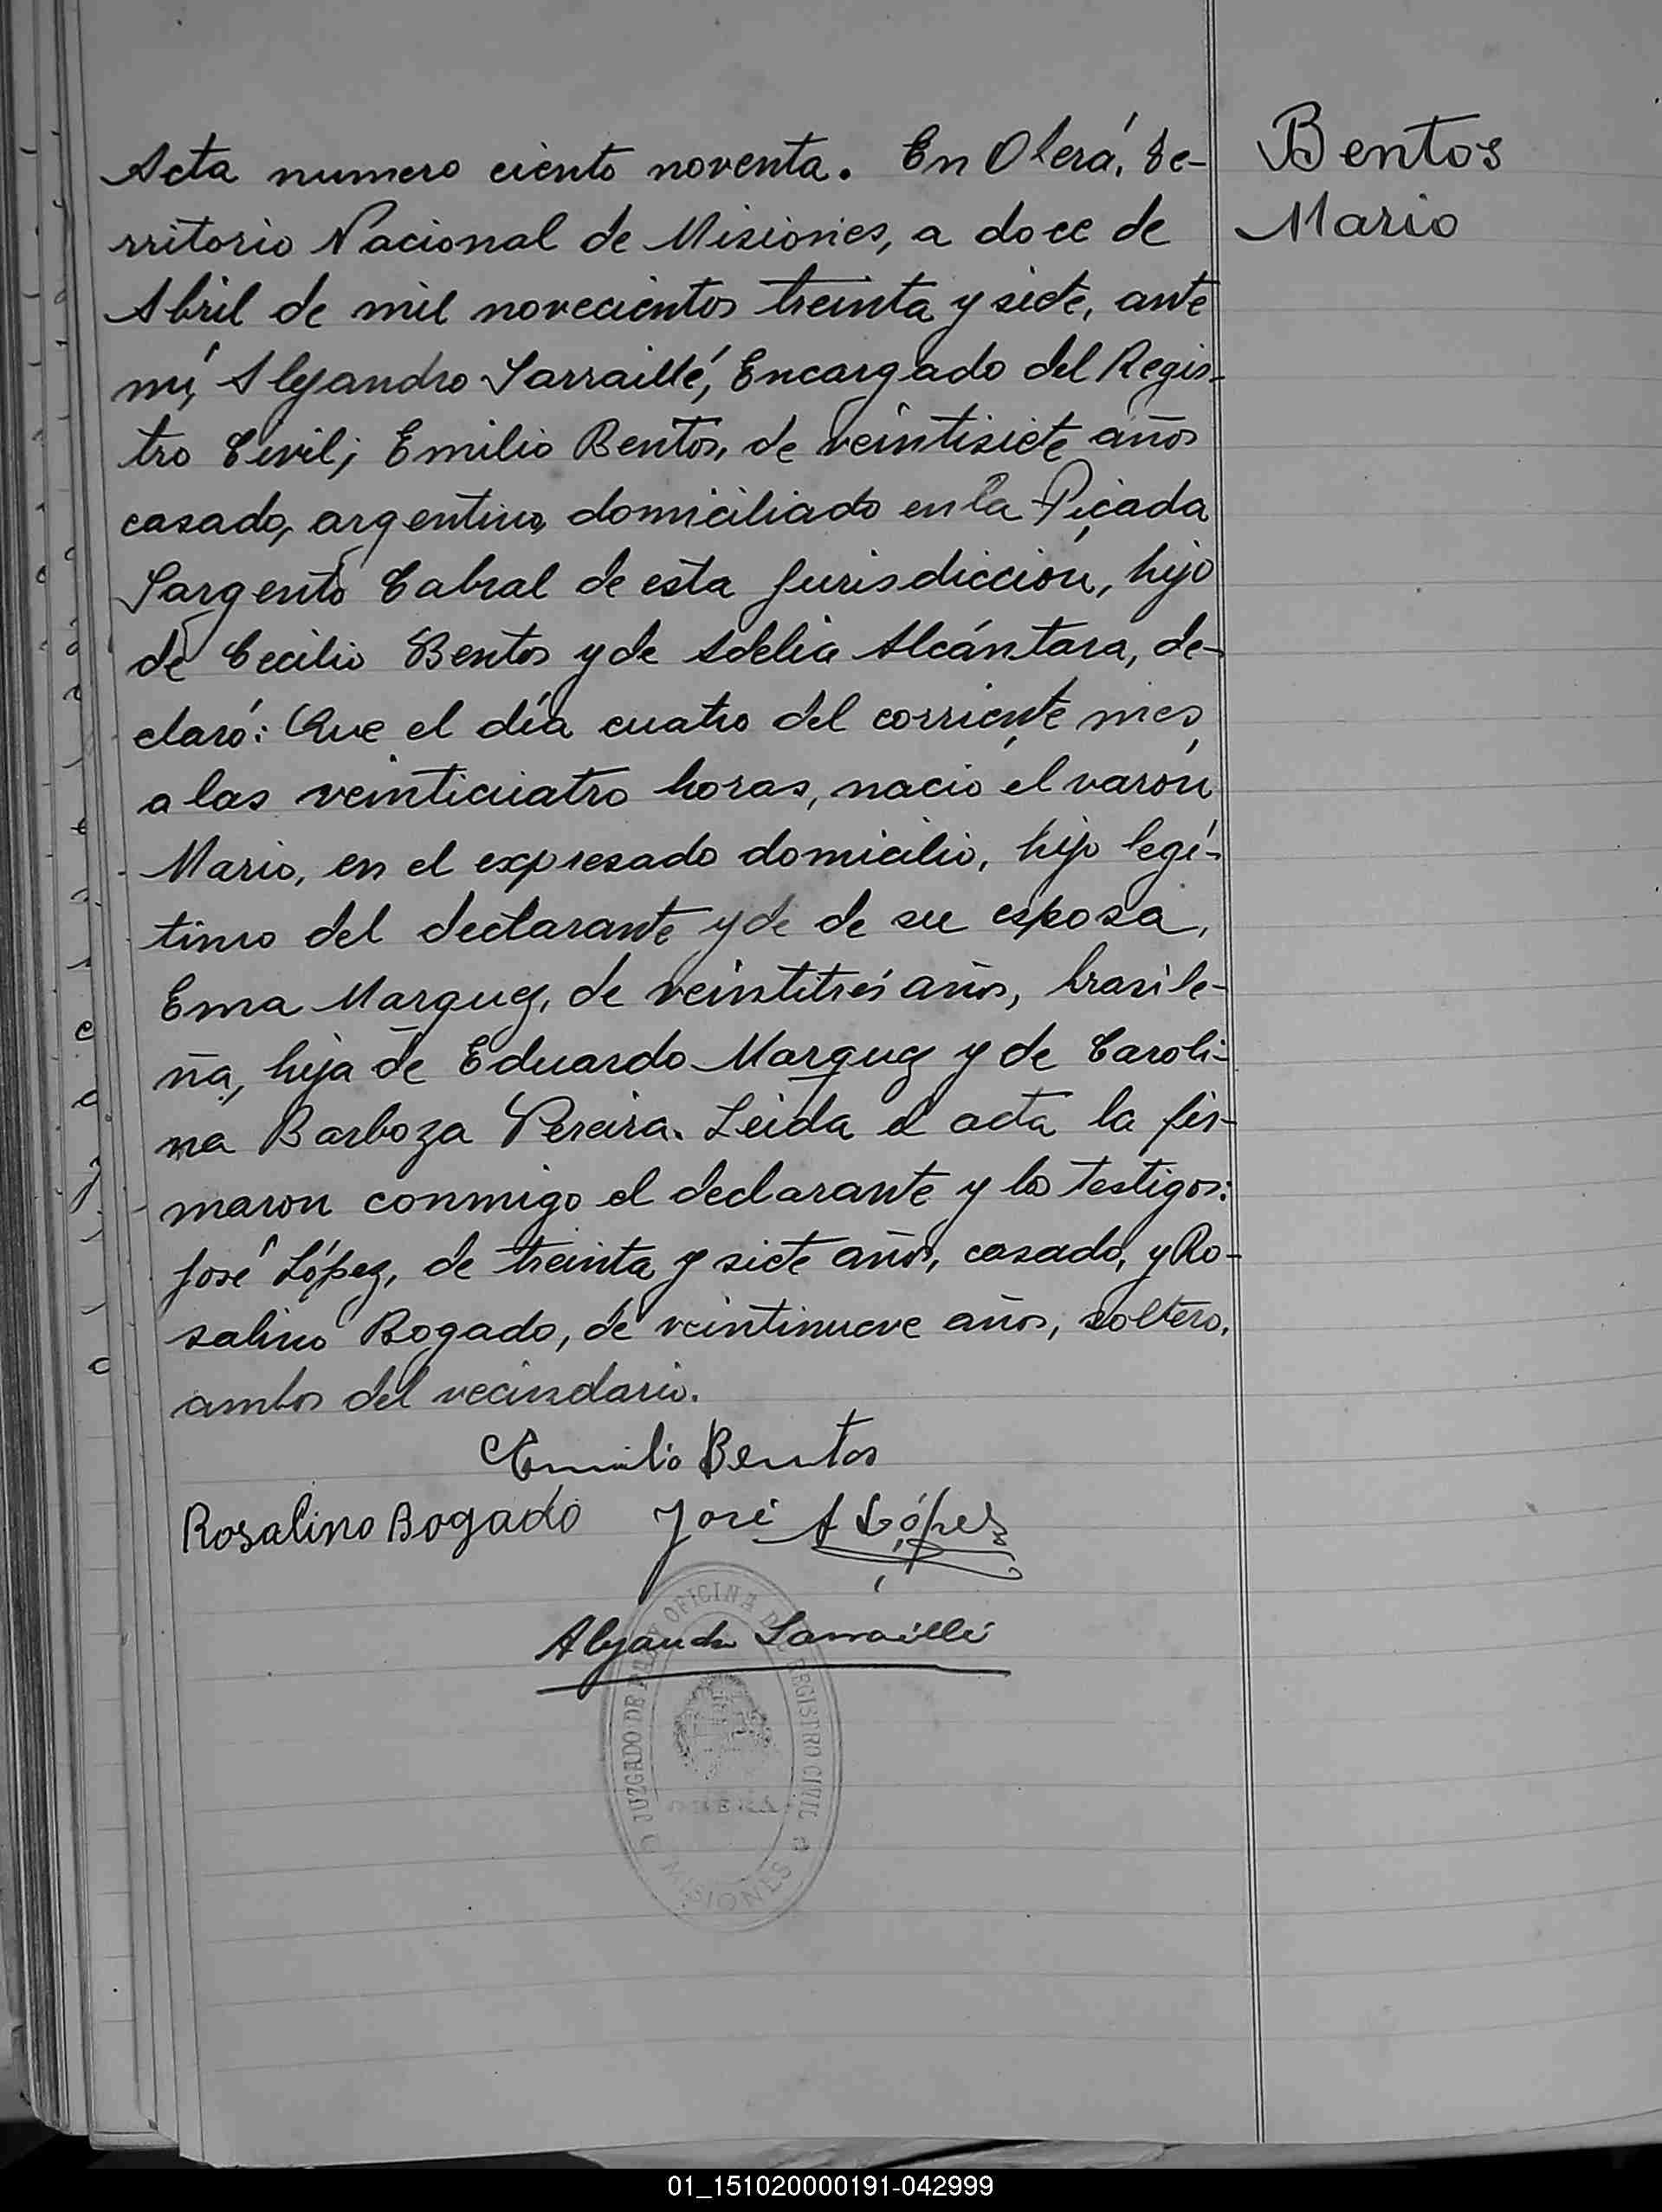 Acta numero ciento noventa. En Oberá, Te-
rritorio Nacional de Misiones, a doce de
Abril de mil novecientos treinta y siete, ante
mí, Alejandro Sarraillé, Encargado del Regis-
tro Civil; Emilio Bentos, de veintisiete años
casado, argentino, domiciliado en la Picada
Sargento Cabral de esta jurisdicción, hijo
de Cecilio Bentos y de Adelia Alcántara, de-
claró: Que el día cuatro del corriente mes,
a las veinticuatro horas, nació el varón
Mario, en el expresado domicilio, hijo legí-
timo del declarante y de de su esposa,
Ema Marquez, de veintitrés años, brasile-
ña, hija de Eduardo Marquez y de Caroli-
na Barboza Pereira. Leida el acta la fir-
maron conmigo el declarante y los testigos:
José López, de treinta y siete años, casado, y Ro-
salino Bogado, de veintinueve años, soltero,
ambos del vecindario.
Emilio Bentos
Rosalino Bogado José A López
Alejandro Sarraillé
JUZGADO DE PAZ Y OFICINA DEL REGISTRO CIVIL
OBERA
MISIONES
Bentos
Mario
01_151020000191-042999